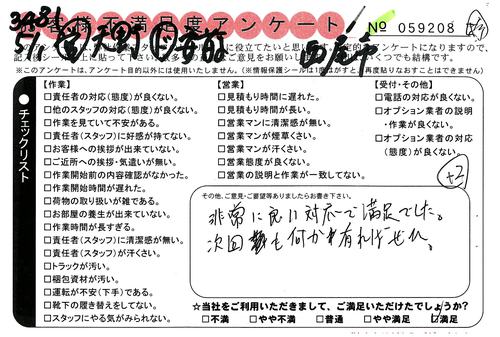 お客様不満足度アンケート
No 059208
このアンケートは、
役立てたいと思い
※このアンケートは、アンケート目的以外には使用いたしません。(※情報保護シールは1度はがすと再度貼りなおすことはできません)
チェックリスト
【作業】
□責任者の対応(態度)が良くない。
□他のスタッフの対応(態度)が良くない。
□作業を見ていて不安がある。
□責任者(スタッフ)に好感が持てない。
□お客様への挨拶が出来ていない。
□ご近所への挨拶・気遣いが無い。
□作業開始前の内容確認がなかった。
□作業開始時間が遅れた。
□荷物の取り扱いが雑である。
□お部屋の養生が出来ていない。
□作業時間が長すぎる。
□責任者(スタッフ)に清潔感が無い。
□責任者(スタッフ)が汗くさい。
□トラックが汚い。
□梱包資材が汚い。
□運転が不安(下手)である。
□靴下の履き替えをしてない。
□スタッフにやる気がみられない。
【営業】
□見積もり時間に遅れた。
□見積もり時間が長い。
□営業マンに清潔感が無い。
□営業マンが煙草くさい。
□営業マンが汗くさい。
□営業態度が良くない。
□営業の説明と作業が一致してない。
【受付・その他】
□電話の対応が良くない。
□オプション業者の説明
・作業が良くない。
□オプション業者の対応
(態度)が良くない。
+2
その他、ご意見・ご要望等ありましたらお書き下さい。
非常に良い対応で満足でした。
次回も何か有ればぜひ。
☆当社をご利用いただきまして、ご満足いただけたでしょうか?
□不満 □やや不満 □普通 □やや満足 □満足